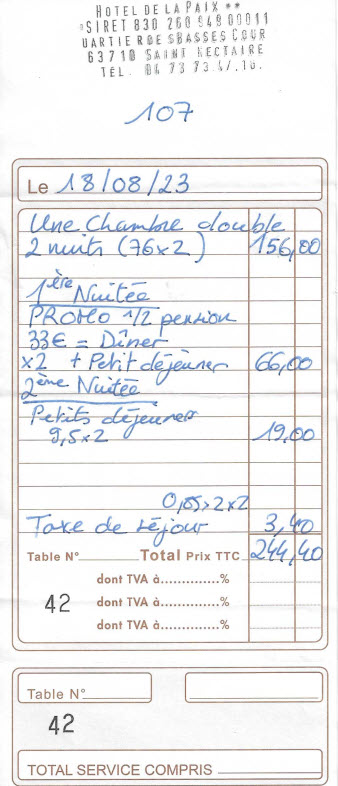 HOTEL DE LA PAIX **
SIRET 830 260 949 00011
UARTIER DE SBASSES COUR
63710 SAINT NECTAIRE
TEL. 04 73 73.47.
107
Le 18/08/23
Une Chambre double
2 nuits (76x2) 156,00
1ère Nuitée
PROMO 1/2 pension
33€ = Dîner
x2 + Petit déjeuner 66,00
2ème Nuitée
Petits déjeuners
9,5x2 19,00
0,85x2x2
Taxe de séjour 3,40
Table N° Total Prix TTC 244,40
dont TVA à.............%
42 dont TVA à.............%
dont TVA à.............%
Table N°
42
TOTAL SERVICE COMPRIS